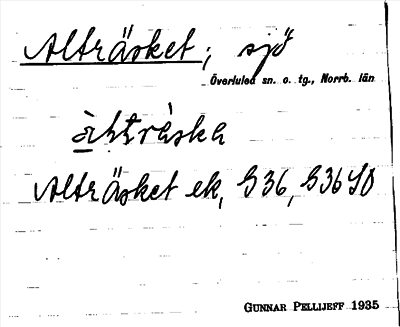 Alträsket, sjö
Överluleå sn. o. tg., Norrb. län
Alträsket ek, G36, G36 SO
GUNNAR PELLIJEFF 1935